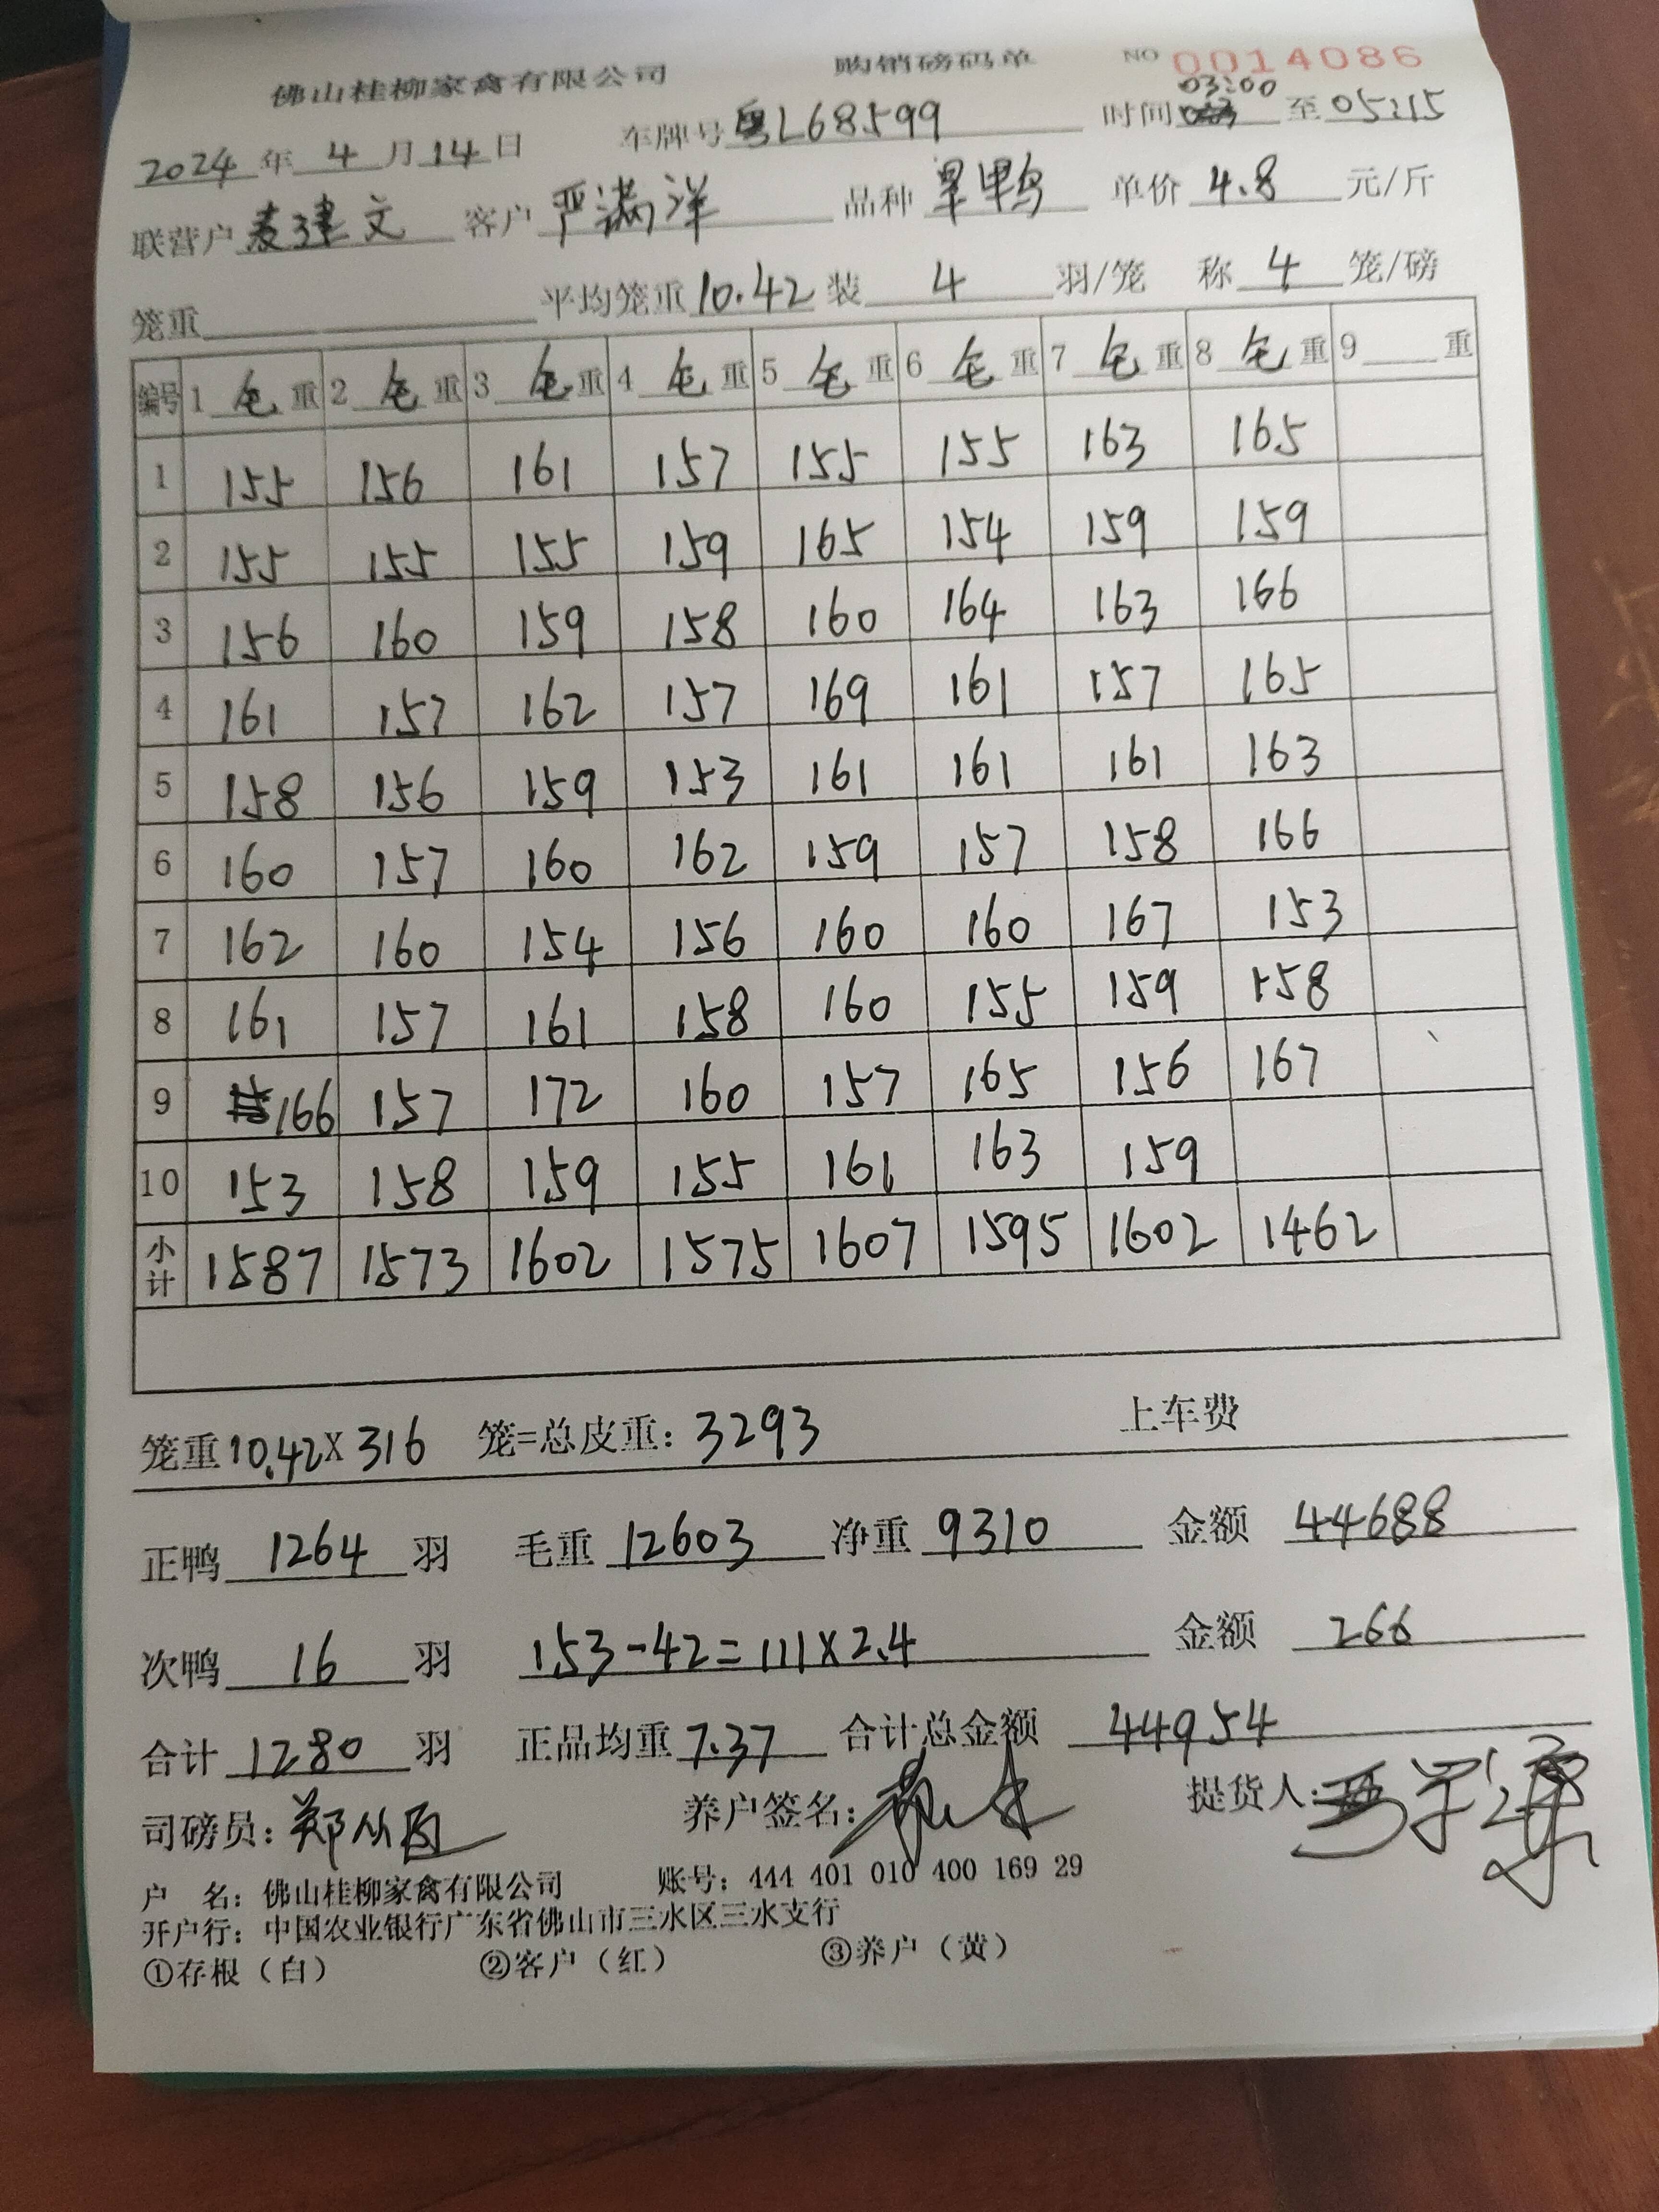 佛山桂柳家禽有限公司 购销磅码单 NO 0014086
2024 年 4 月 14 日 车牌号 粤L68599 时间 03:00 至 05:15
联营户 麦建文 客户 严满洋 品种 旱鸭 单价 4.8 元/斤
笼重 平均笼重 10.42 装 4 羽/笼 称 4 笼/磅
编号 1 毛 重 2 毛 重 3 毛 重 4 毛 重 5 毛 重 6 毛 重 7 毛 重 8 毛 重 9 重
1 155 156 161 157 155 155 163 165
2 155 155 155 159 165 154 159 159
3 156 160 159 158 160 164 163 166
4 161 157 162 157 169 161 157 165
5 158 156 159 153 161 161 161 163
6 160 157 160 162 159 157 158 166
7 162 160 154 156 160 160 167 153
8 161 157 161 158 160 155 159 158
9 166 157 172 160 157 165 156 167
10 153 158 159 155 161 163 159
小计 1587 1573 1602 1575 1607 1595 1602 1462
笼重 10.42 X 316 笼=总皮重: 3293 上车费
正鸭 1264 羽 毛重 12603 净重 9310 金额 44688
次鸭 16 羽 153-42=111X2.4 金额 266
合计 1280 羽 正品均重 7.37 合计总金额 44954
司磅员: 郑 养户签名: 提货人:
户 名: 佛山桂柳家禽有限公司 账号: 444 401 010 400 169 29
开户行: 中国农业银行广东省佛山市三水区三水支行
①存根（白） ②客户（红） ③养户（黄）